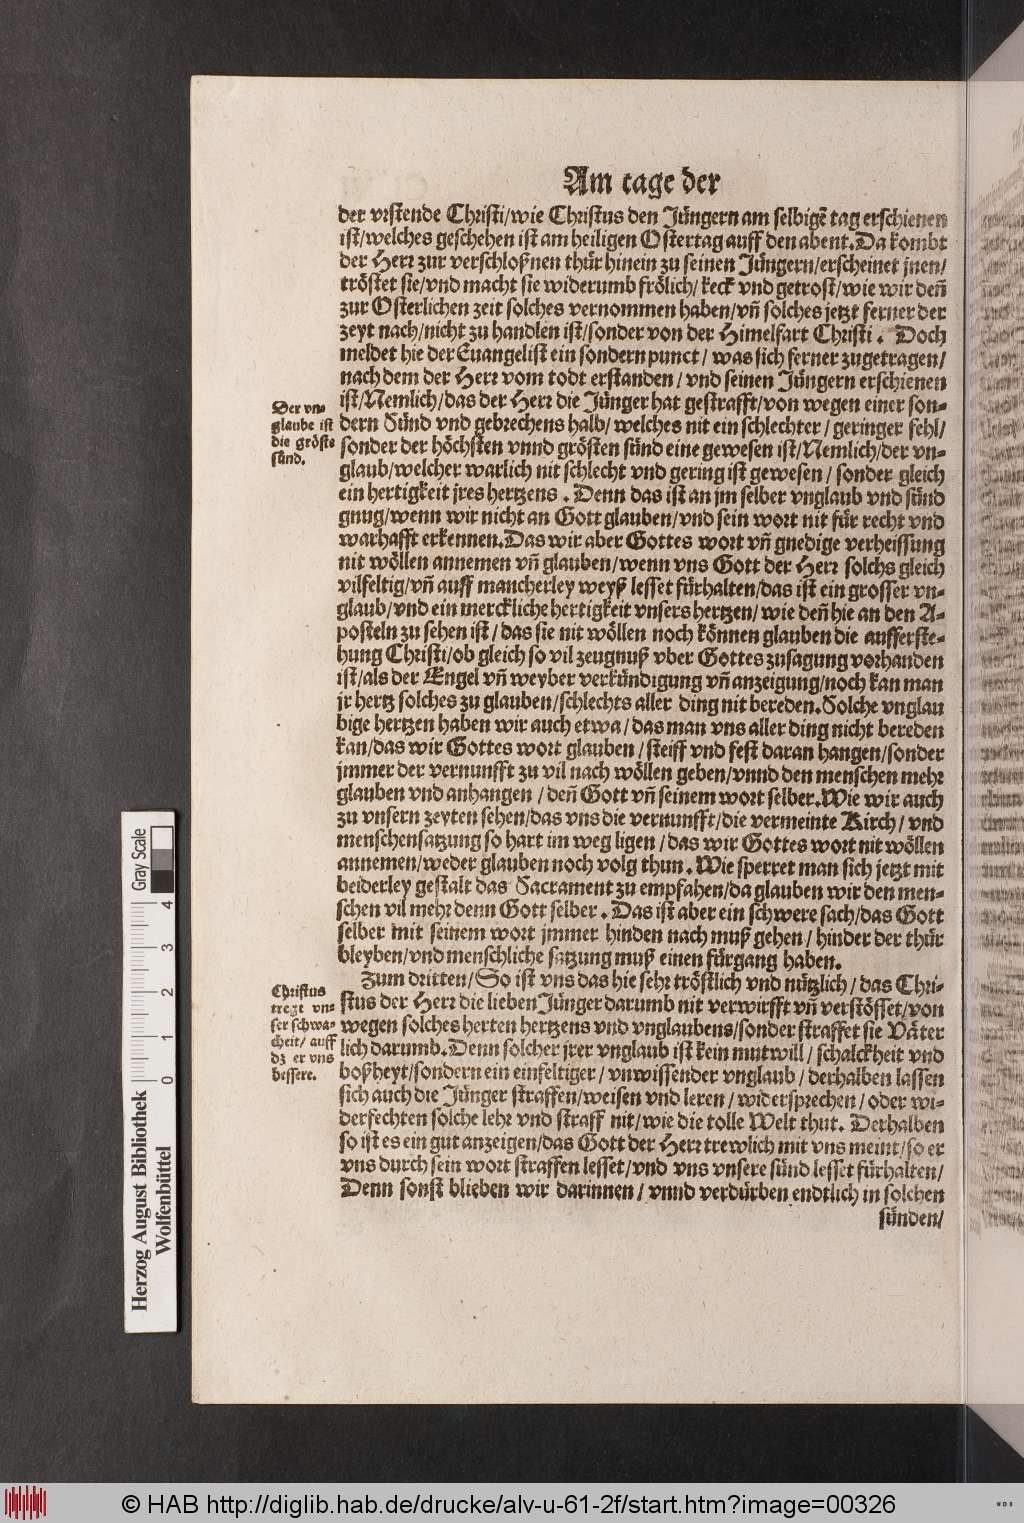 Am tage der
der vrstende Christi/wie Christus den Jüngern am selbigē tag erschienen
ist/welches geschehen ist am heiligen Ostertag auff den abent. Da kombt
der Herr zur verschloßnen thür hinein zu seinen Jüngern/erscheinet jnen/
tröstet sie/vnd macht sie widerumb frölich/ keck vnd getrost/wie wir deñ
zur Osterlichen zeit solches vernommen haben/vñ solches jetzt ferner der
zeyt nach/nicht zu handlen ist/sonder von der Himelfart Christi. Doch
meldet hie der Euangelist ein sondern punct/ was sich ferner zugetragen/
nach dem der Herr vom todt erstanden/ vnd seinen Jüngern erschienen
ist/Nemlich/das der Herr die Jünger hat gestrafft/von wegen einer son-
dern Sünd vnd gebrechens halb/ welches nit ein schlechter/ geringer fehl/
sonder der höchsten vnnd grösten sünd eine gewesen ist/Nemlich/der vn-
glaub/welcher warlich nit schlecht vnd gering ist gewesen/ sonder gleich
ein hertigkeit jres hertzens. Denn das ist an jm selber vnglaub vnd sünd
gnug/wenn wir nicht an Gott glauben/vnd sein wort nit für recht vnd
warhafft erkennen. Das wir aber Gottes wort vñ gnedige verheissung
nit wöllen annemen vñ glauben/wenn vns Gott der Herr solchs gleich
vilfeltig/vñ auff mancherley weyß lesset fürhalten/das ist ein grosser vn-
glaub/vnd ein merckliche hertigkeit vnsers hertzen/ wie deñ hie an den A-
posteln zu sehen ist/ das sie nit wöllen noch können glauben die aufferste-
hung Christi/ob gleich so vil zeugnuß vber Gottes zusagung vorhanden
ist/als der Engel vñ weyber verkündigung vñ anzeigung/noch kan man
jr hertz solches zu glauben/schlechts aller ding nit bereden. Solche vnglau
bige hertzen haben wir auch etwa/ das man vns aller ding nicht bereden
kan/das wir Gottes wort glauben/ steiff vnd fest daran hangen/sonder
jmmer der vernunfft zu vil nach wöllen geben/vnnd den menschen mehr
glauben vnd anhangen/ deñ Gott vñ seinem wort selber. Wie wir auch
zu vnsern zeyten sehen/das vns die vernunfft/die vermeinte Kirch/ vnd
menschensatzung so hart im weg ligen/ das wir Gottes wort nit wöllen
annemen/weder glauben noch volg thun. Wie sperret man sich jetzt mit
beiderley gestalt das Sacrament zu empfahen/da glauben wir den men-
schen vil mehr denn Gott selber. Das ist aber ein schwere sach/das Gott
selber mit seinem wort jmmer hinden nach muß gehen/ hinder der thür
bleyben/vnd menschliche satzung muß einen fürgang haben.
Zum dritten/ So ist vns das hie sehr tröstlich vnd nützlich/ das Chri-
stus der Herr die lieben Jünger darumb nit verwirfft vñ verstösset/von
wegen solches herten hertzens vnd vnglaubens/sonder straffet sie Väter
lich darumb. Denn solcher jrer vnglaub ist kein mutwill/ schalckheit vnd
boßheyt/sondern ein einfeltiger/ vnwissender vnglaub/ derhalben lassen
sich auch die Jünger straffen/weisen vnd leren/ widersprechen/ oder wi-
derfechten solche lehr vnd straff nit/wie die tolle Welt thut. Derhalben
so ist es ein gut anzeigen/das Gott der Herr trewlich mit vns meint/so er
vns durch sein wort straffen lesset/vnd vns vnsere sünd lesset fürhalten/
Denn sonst blieben wir darinnen/ vnnd verdürben endtlich in solchen
sünden/
Der vn-
glaube ist
die gröste
sünd.
Christus
tregt vn-
ser schwa-
cheit/ auff
dz er vns
bessere.
Herzog August Bibliothek
Wolfenbüttel
0 1 2 3 4
Gray Scale
© HAB http://diglib.hab.de/drucke/alv-u-61-2f/start.htm?image=00326
WDB